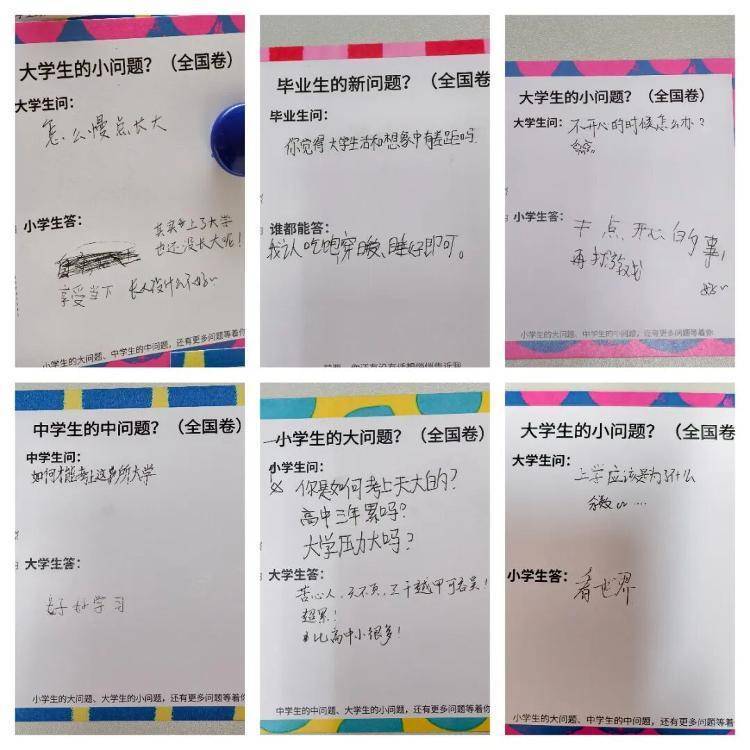 大学生的小问题？（全国卷）
大学生问：
怎么慢点长大
小学生答：
其实考上了大学
也还没长大呢！
享受当下
小学生的大问题、中学生的中问题，还有更多问题等着你
毕业生的新问题？（全国卷
毕业生问：
你觉得大学生活和想象中有差距吗
谁都能答：
我认吃饱穿暖、睡好即可。
大学生的小问题？（全国卷）
大学生问：
不开心的时候怎么办？
小学生答：
干点开心的事！
再打游戏
小学生的大问题、中学生的中问题，还有更多问题等着你
中学生的中问题？（全国卷）
中学生问：
如何才能考上这所大学
大学生答：
好好学习
小学生的大问题、大学生的小问题，还有更多问题等着你
小学生的大问题？（全国卷）
小学生问：
你是如何考上天大的？
高中三年累吗？
大学压力大吗？
大学生答：
苦心人，天不负，三千越甲可吞吴！
超累！
比高中小很多！
中学生的中问题、大学生的小问题，还有更多问题等着
大学生的小问题？（全国卷
大学生问：
上学应该是为了什么
小学生答：
看世界
小学生的大问题、中学生的中问题，还有更多问题等着